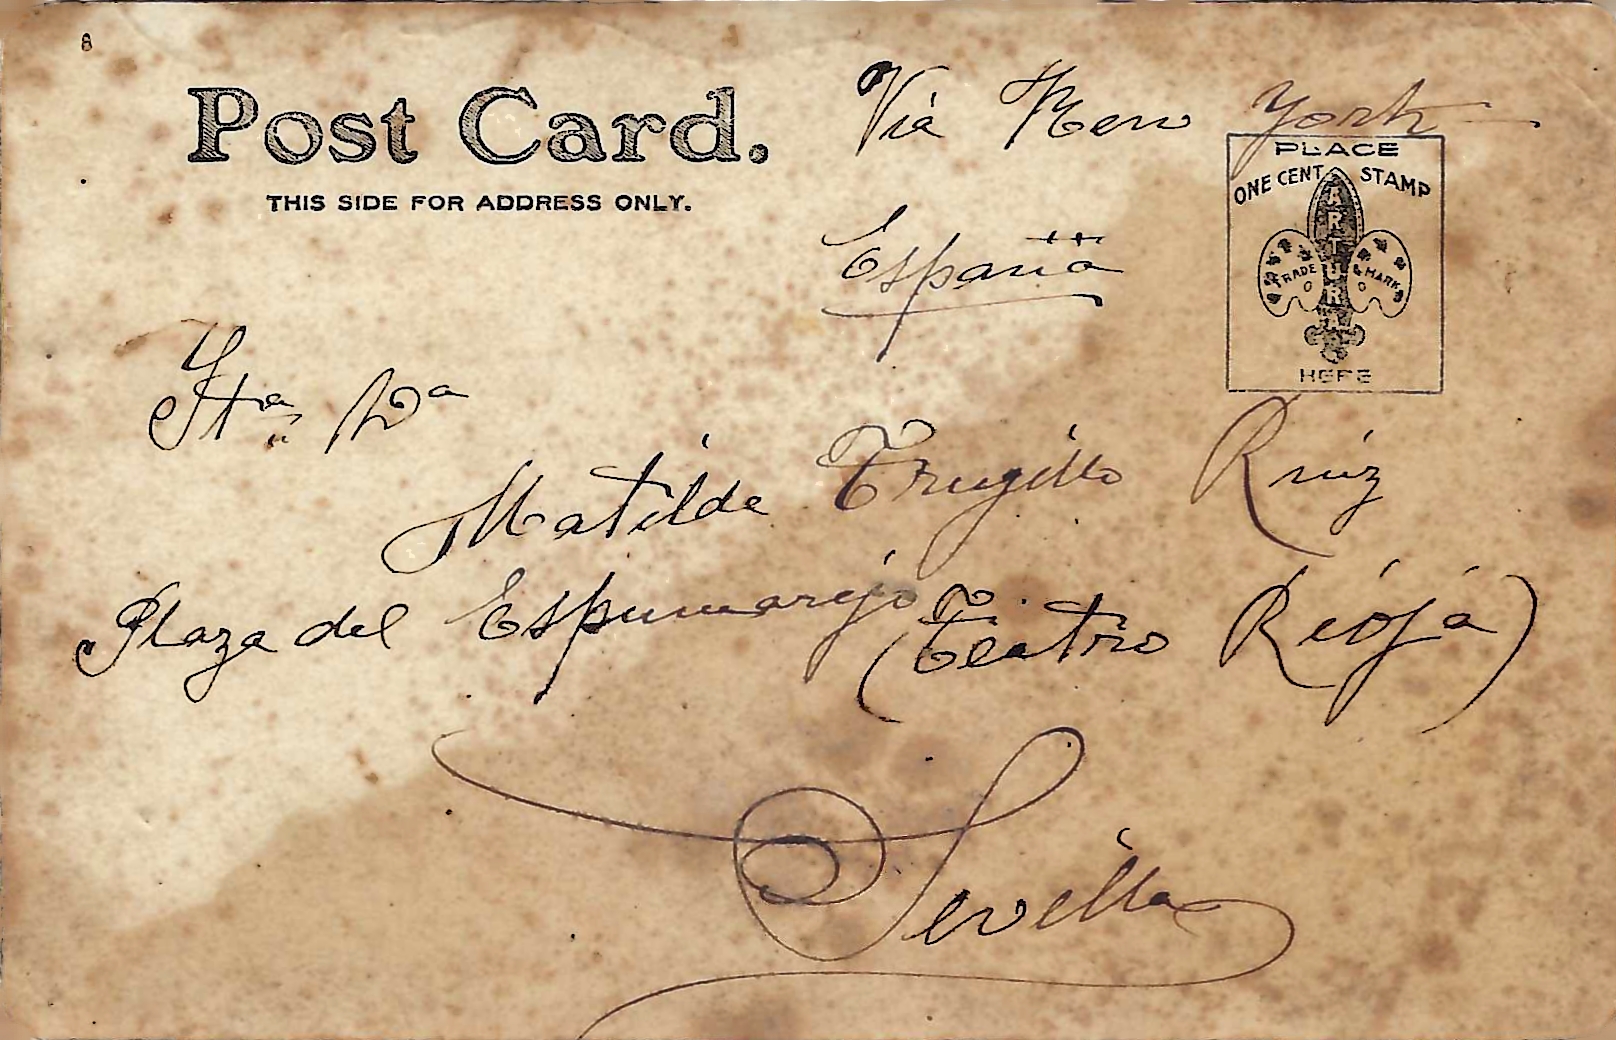 8
Post Card.
THIS SIDE FOR ADDRESS ONLY.
Via New York
PLACE
ONE CENT STAMP
ARTURA
TRADE MARK
HERE
España
Sta. Da
Matilde Trugillo Ruiz
Plaza del Espumarejo (Teatro Rioja)
Sevilla